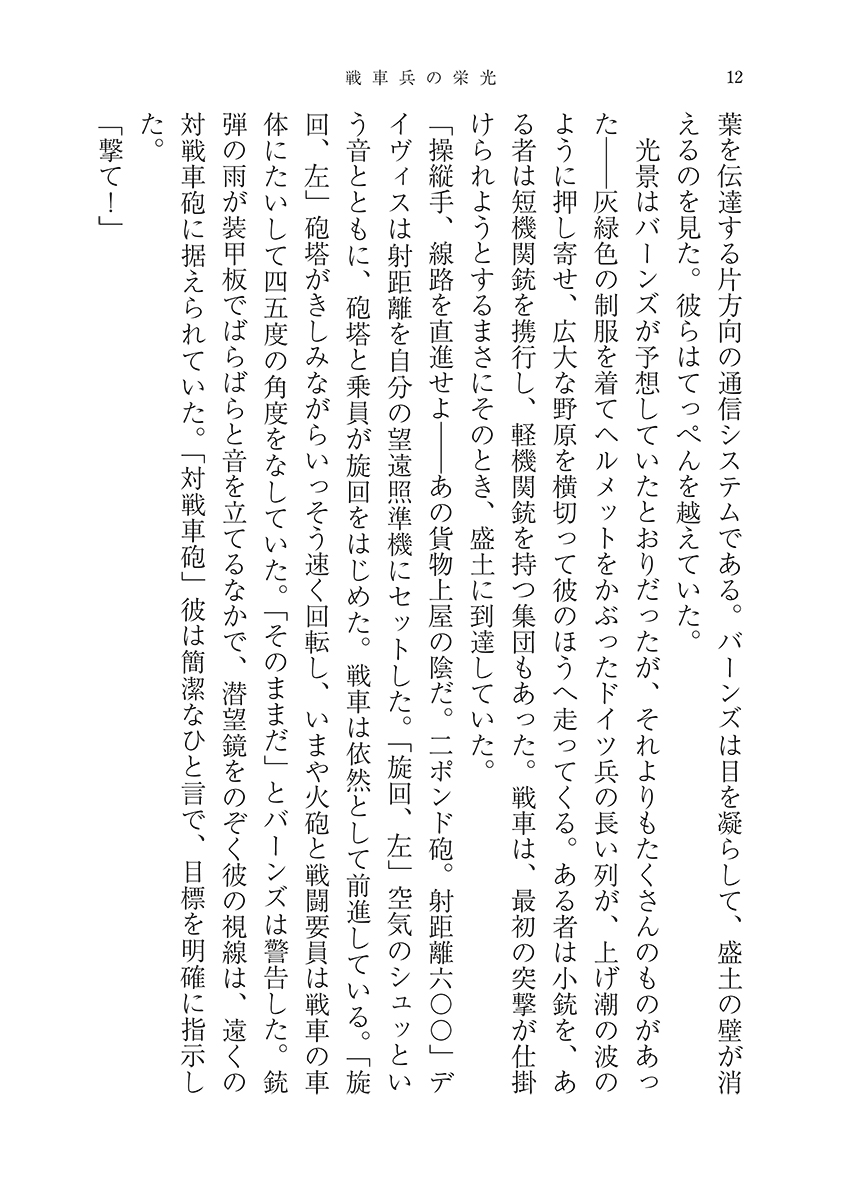 戦車兵の栄光
12
葉を伝達する片方向の通信システムである。バーンズは目を凝らして、盛土の壁が消
えるのを見た。彼らはてっぺんを越えていた。
　光景はバーンズが予想していたとおりだったが、それよりもたくさんのものがあっ
た――灰緑色の制服を着てヘルメットをかぶったドイツ兵の長い列が、上げ潮の波の
ように押し寄せ、広大な野原を横切って彼のほうへ走ってくる。ある者は小銃を、あ
る者は短機関銃を携行し、軽機関銃を持つ集団もあった。戦車は、最初の突撃が仕掛
けられようとするまさにそのとき、盛土に到達していた。
「操縦手、線路を直進せよ――あの貨物上屋の陰だ。二ポンド砲。射距離六〇〇」デ
イヴィスは射距離を自分の望遠照準機にセットした。「旋回、左」空気のシュッとい
う音とともに、砲塔と乗員が旋回をはじめた。戦車は依然として前進している。「旋
回、左」砲塔がきしみながらいっそう速く回転し、いまや火砲と戦闘要員は戦車の車
体にたいして四五度の角度をなしていた。「そのままだ」とバーンズは警告した。銃
弾の雨が装甲板でばらばらと音を立てるなかで、潜望鏡をのぞく彼の視線は、遠くの
対戦車砲に据えられていた。「対戦車砲」彼は簡潔なひと言で、目標を明確に指示し
た。
「撃て！」